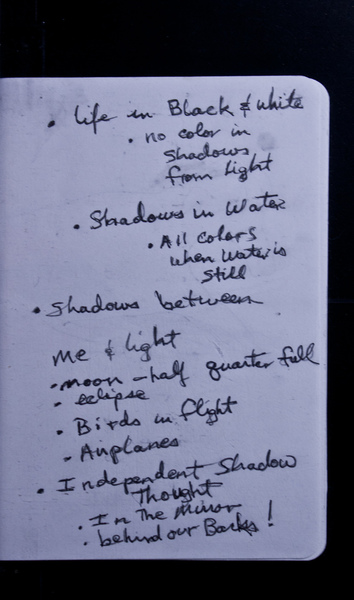 • Life in Black & white
• no color in
shadows
from light
• Shadows in Water
• All colors
when water is
still
• Shadows between
me & light
• moon - half quarter full
- eclipse
• Birds in flight
- Airplanes
• Independent Shadow
Thought
• In The Mirror
• behind our Backs!